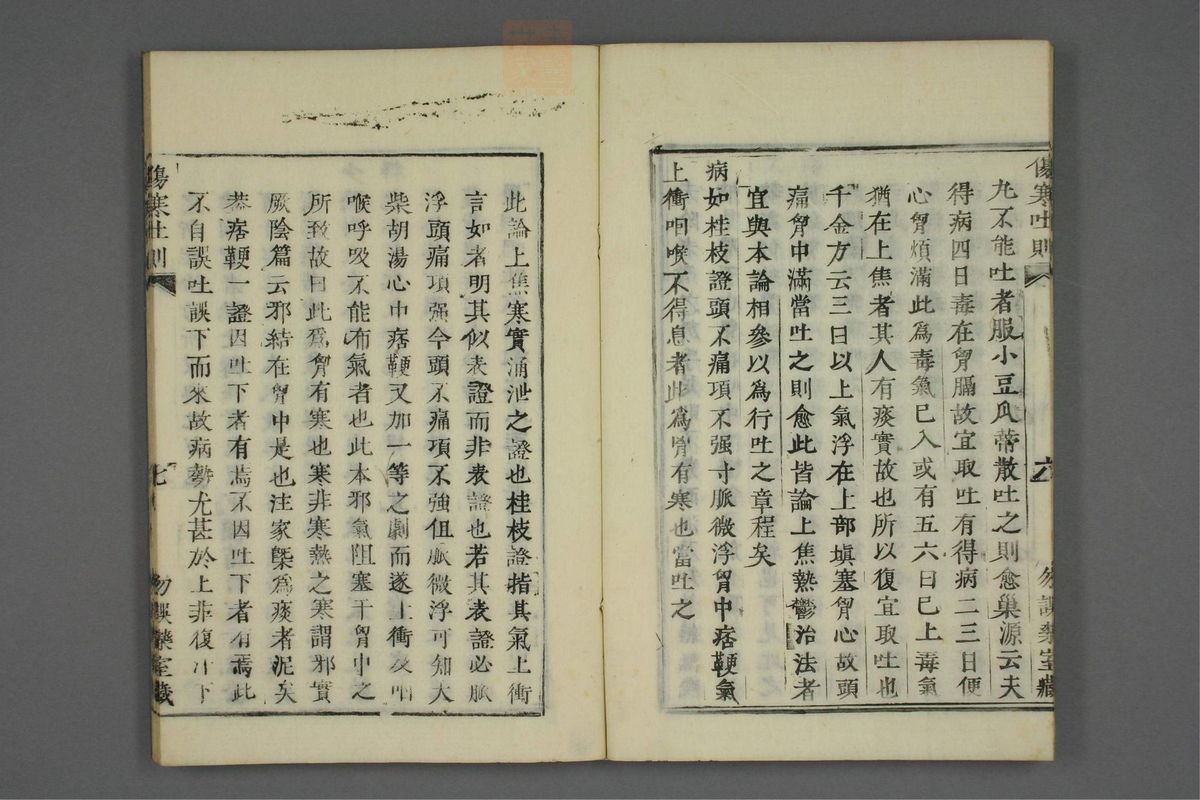 傷寒吐則
六
勿誤藥室藏
尤不能吐者服小豆瓜蒂散吐之則愈巢源云夫
得病四日毒在胷膈故宜取吐有得病二三日便
心胷煩滿此爲毒氣已入或有五六日已上毒氣
猶在上焦者其人有痰實故也所以復宜取吐也
千金方云三日以上氣浮在上部塡塞胷心故頭
痛胷中滿當吐之則愈此皆論上焦熱鬱治法者
宜與本論相參以爲行吐之章程矣
病如桂枝證頭不痛項不强寸脈微浮胷中痞鞕氣
上衝咽喉不得息者此爲胷有寒也當吐之
此論上焦寒實涌泄之證也桂枝證指其氣上衝
言如者明其似表證而非表證也若其表證必脈
浮頭痛項强今頭不痛項不強但脈微浮可知大
柴胡湯心中痞鞕又加一等之劇而遂上衝及咽
喉呼吸不能布氣者也此本邪氣阻塞于胷中之
所致故曰此爲胷有寒也寒非寒熱之寒謂邪實
厥陰篇云邪結在胷中是也注家槩爲痰者泥矣
葢痞鞕一證因吐下者有焉不因吐下者有焉此
不自誤吐誤下而來故病勢尤甚於上非復汗下
傷寒吐則
七
勿誤藥室藏